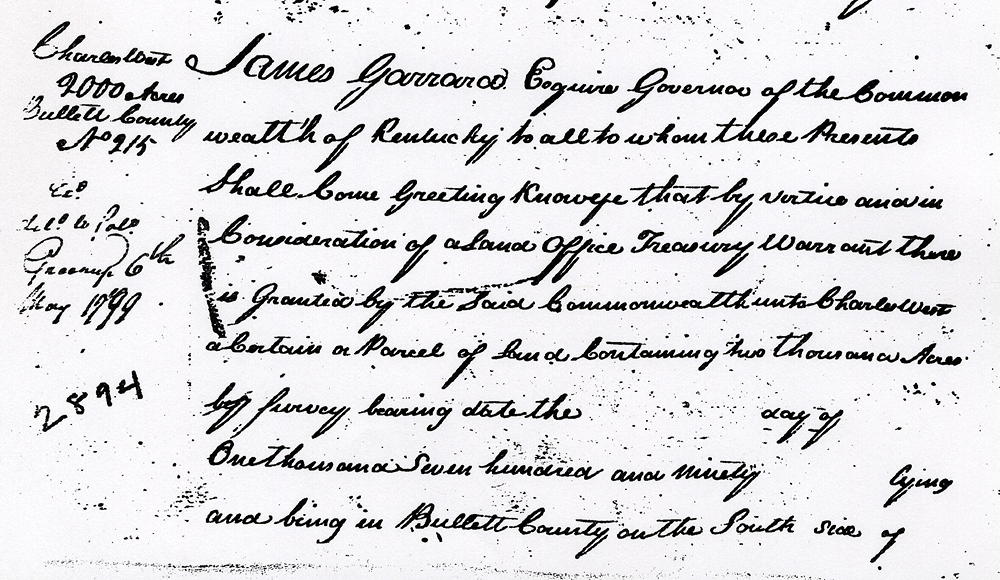 Charles West
2000 Acres
Bullett County
No 215
Exd
Greenup 6th
May 1799
2894
James Garrard Esquire Governor of the Common
wealth of Kentucky to all to whom these Presents
Shall Come Greeting Know ye that by virtue and in
Consideration of a Land Office Treasury Warrant there
is Granted by the Said Commonwealth unto Charles West
a Certain a Parcel of Land Containing two thousand Acres
by Survey bearing date the day of
One thousand Seven hundred and ninety lying
and being in Bullett County on the South side of